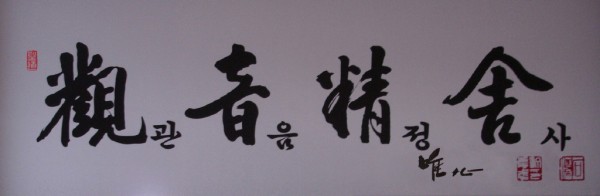 觀관音음精정舍사
唯心